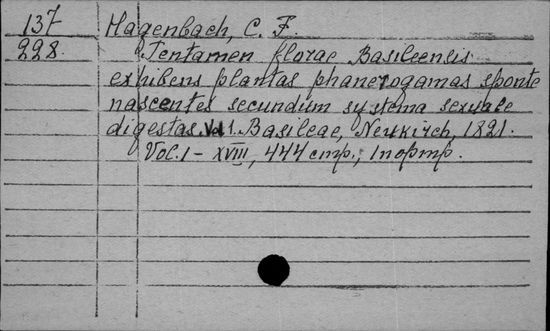 137 Hagenbach, C. F.
228. Tentamen florae Basileensis
exhibens plantas phanerogamas sponte
nascentes secundum systema sexuale
digestas. Vol 1. Basileae, Neukirch, 1821.
Vol. 1 - XVIII, 444 стр., 1 портр.